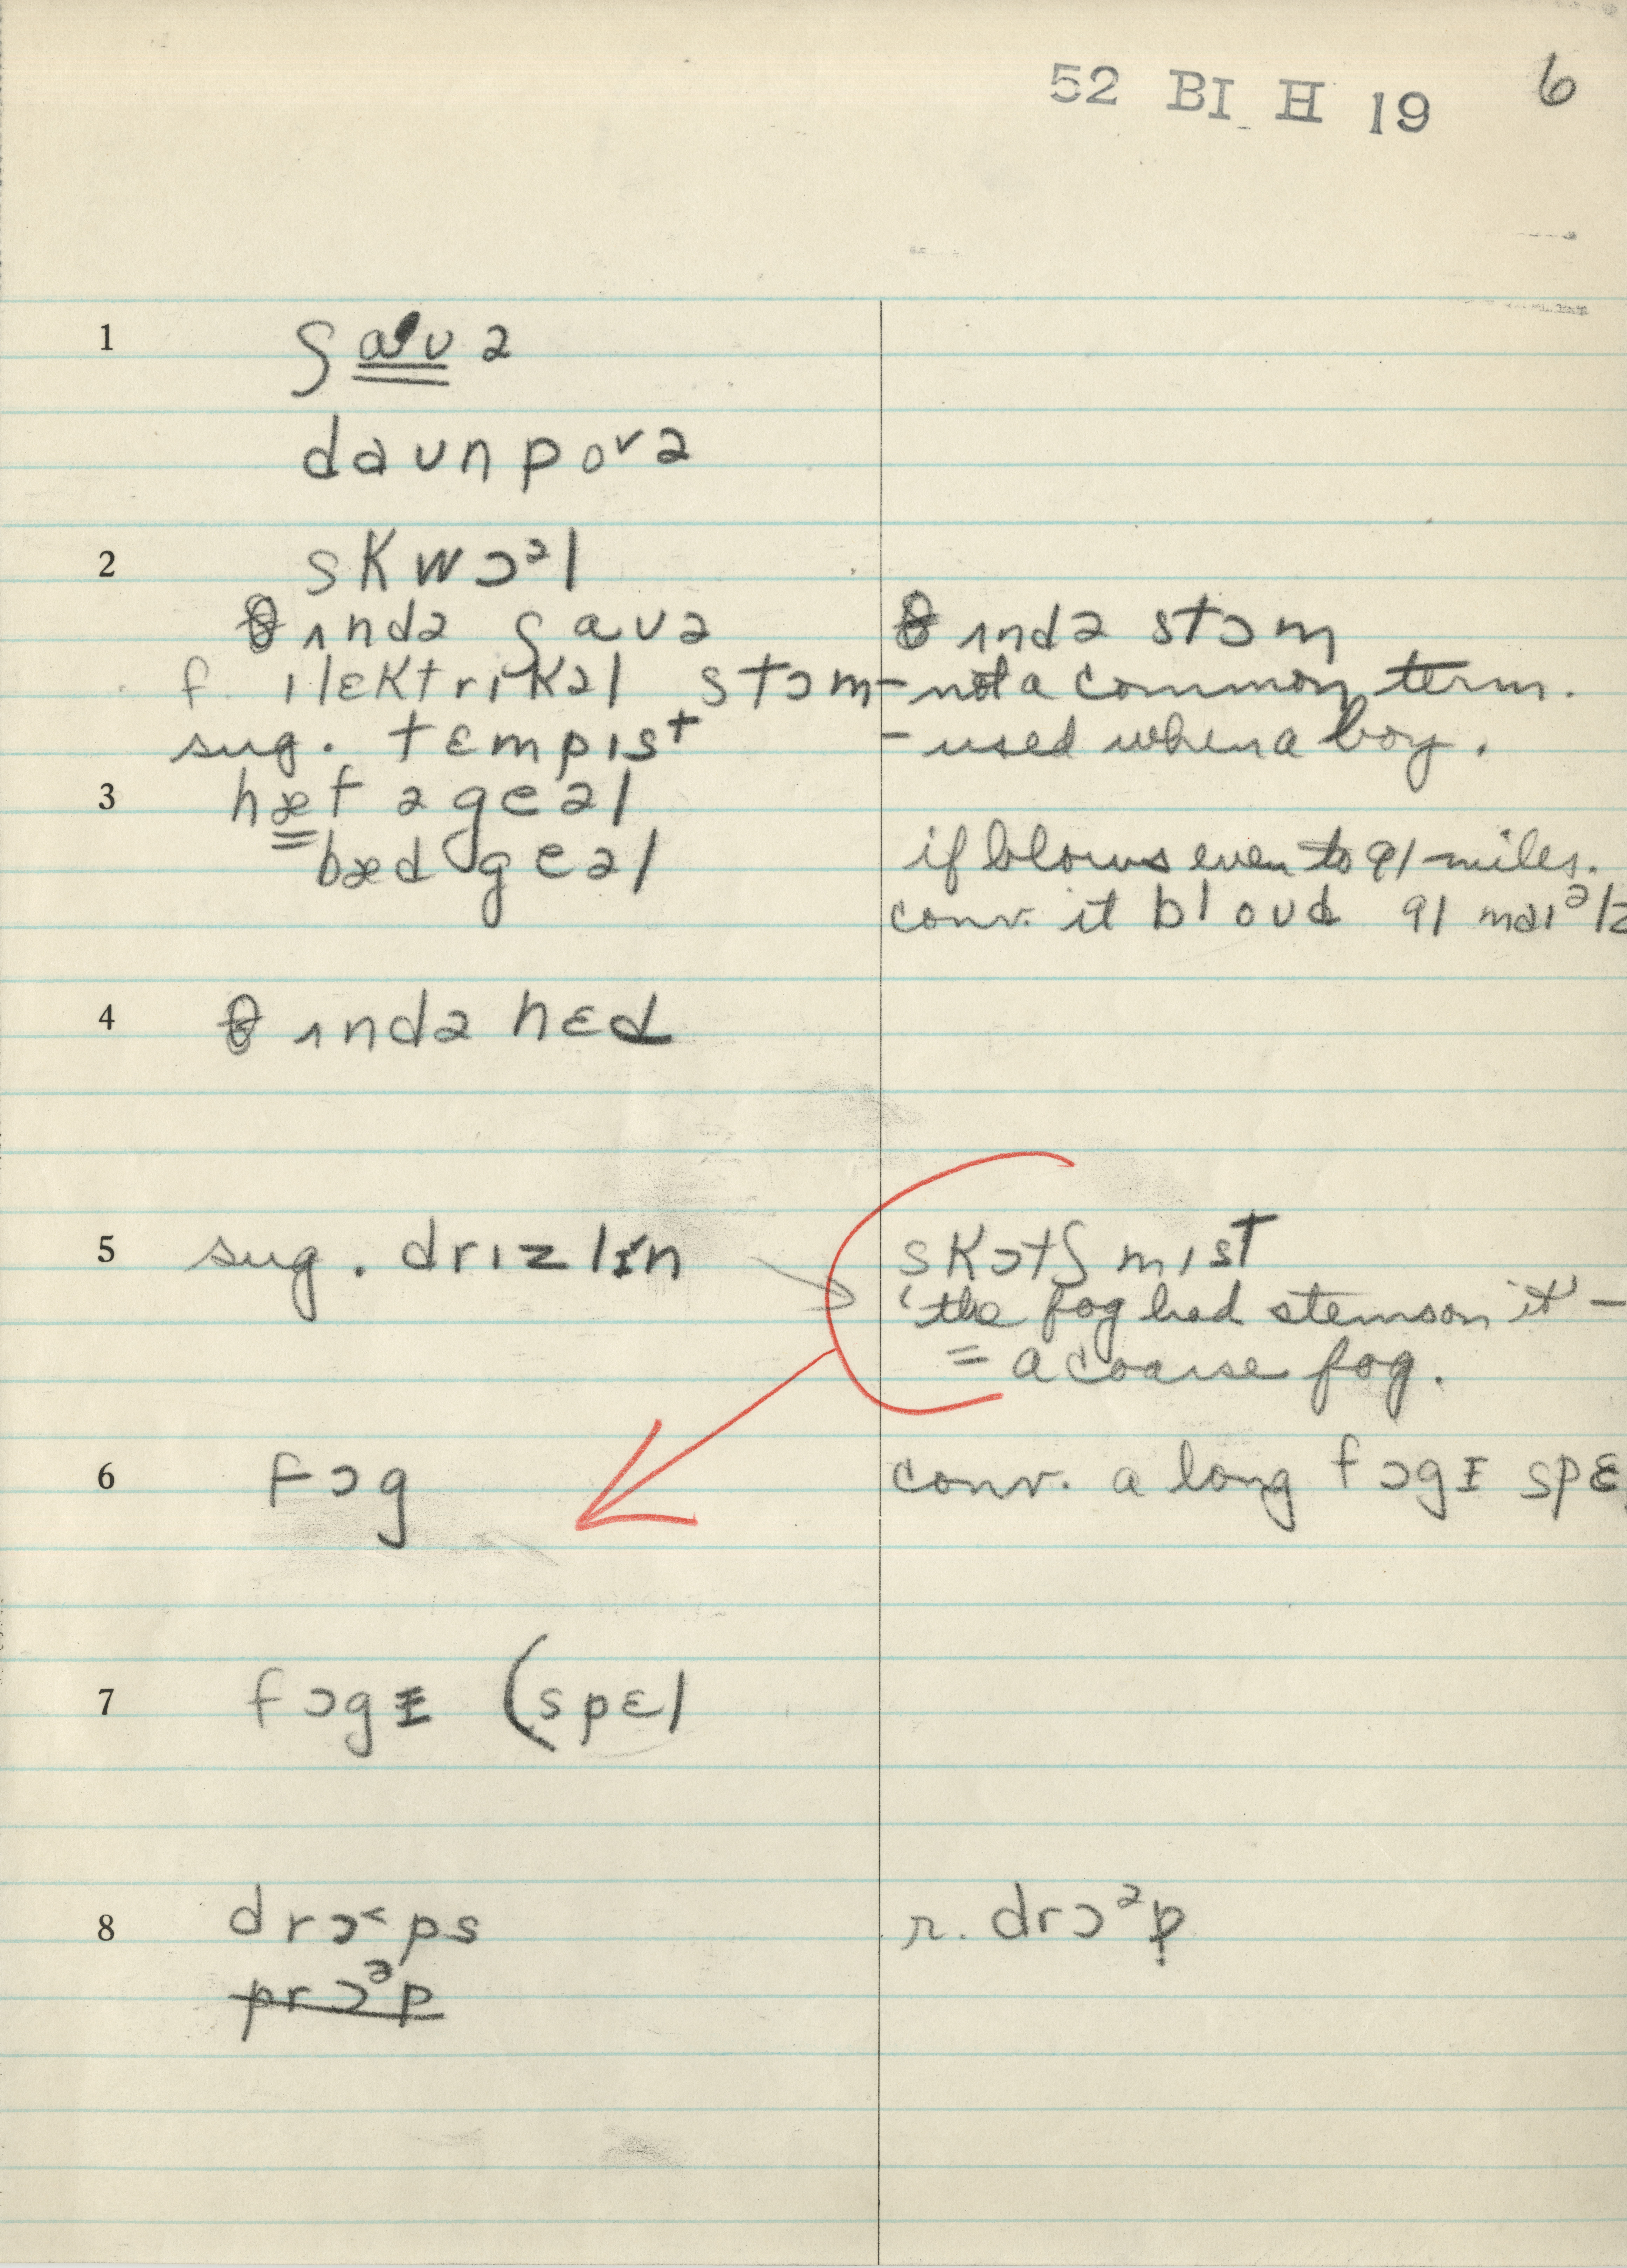 52 BI H 19 6
1 ʃaʊə
daʊnpoᵛə
2 skwɔᵊl
θʌndə ʃaʊə θʌndə stɔm
f. ɪlɛktrɪkəl stɔm - not a common term.
sug. tɛmpɪst - used when a boy.
3 hæf ə geəl
bæd geəl if blows even to 91 miles.
conv. it bloud 91 maɪᵊlz
4 θʌndə hɛd
5 sug. drɪzlɪn skɔtʃ mɪst
'the fog had stems on it' -
= a coarse fog.
6 fɔg conv. a long fɔgɪ spɛ
7 fɔgɪ (spɛl
8 drɔ˂ps r. drɔᵊp
prɔᵊp